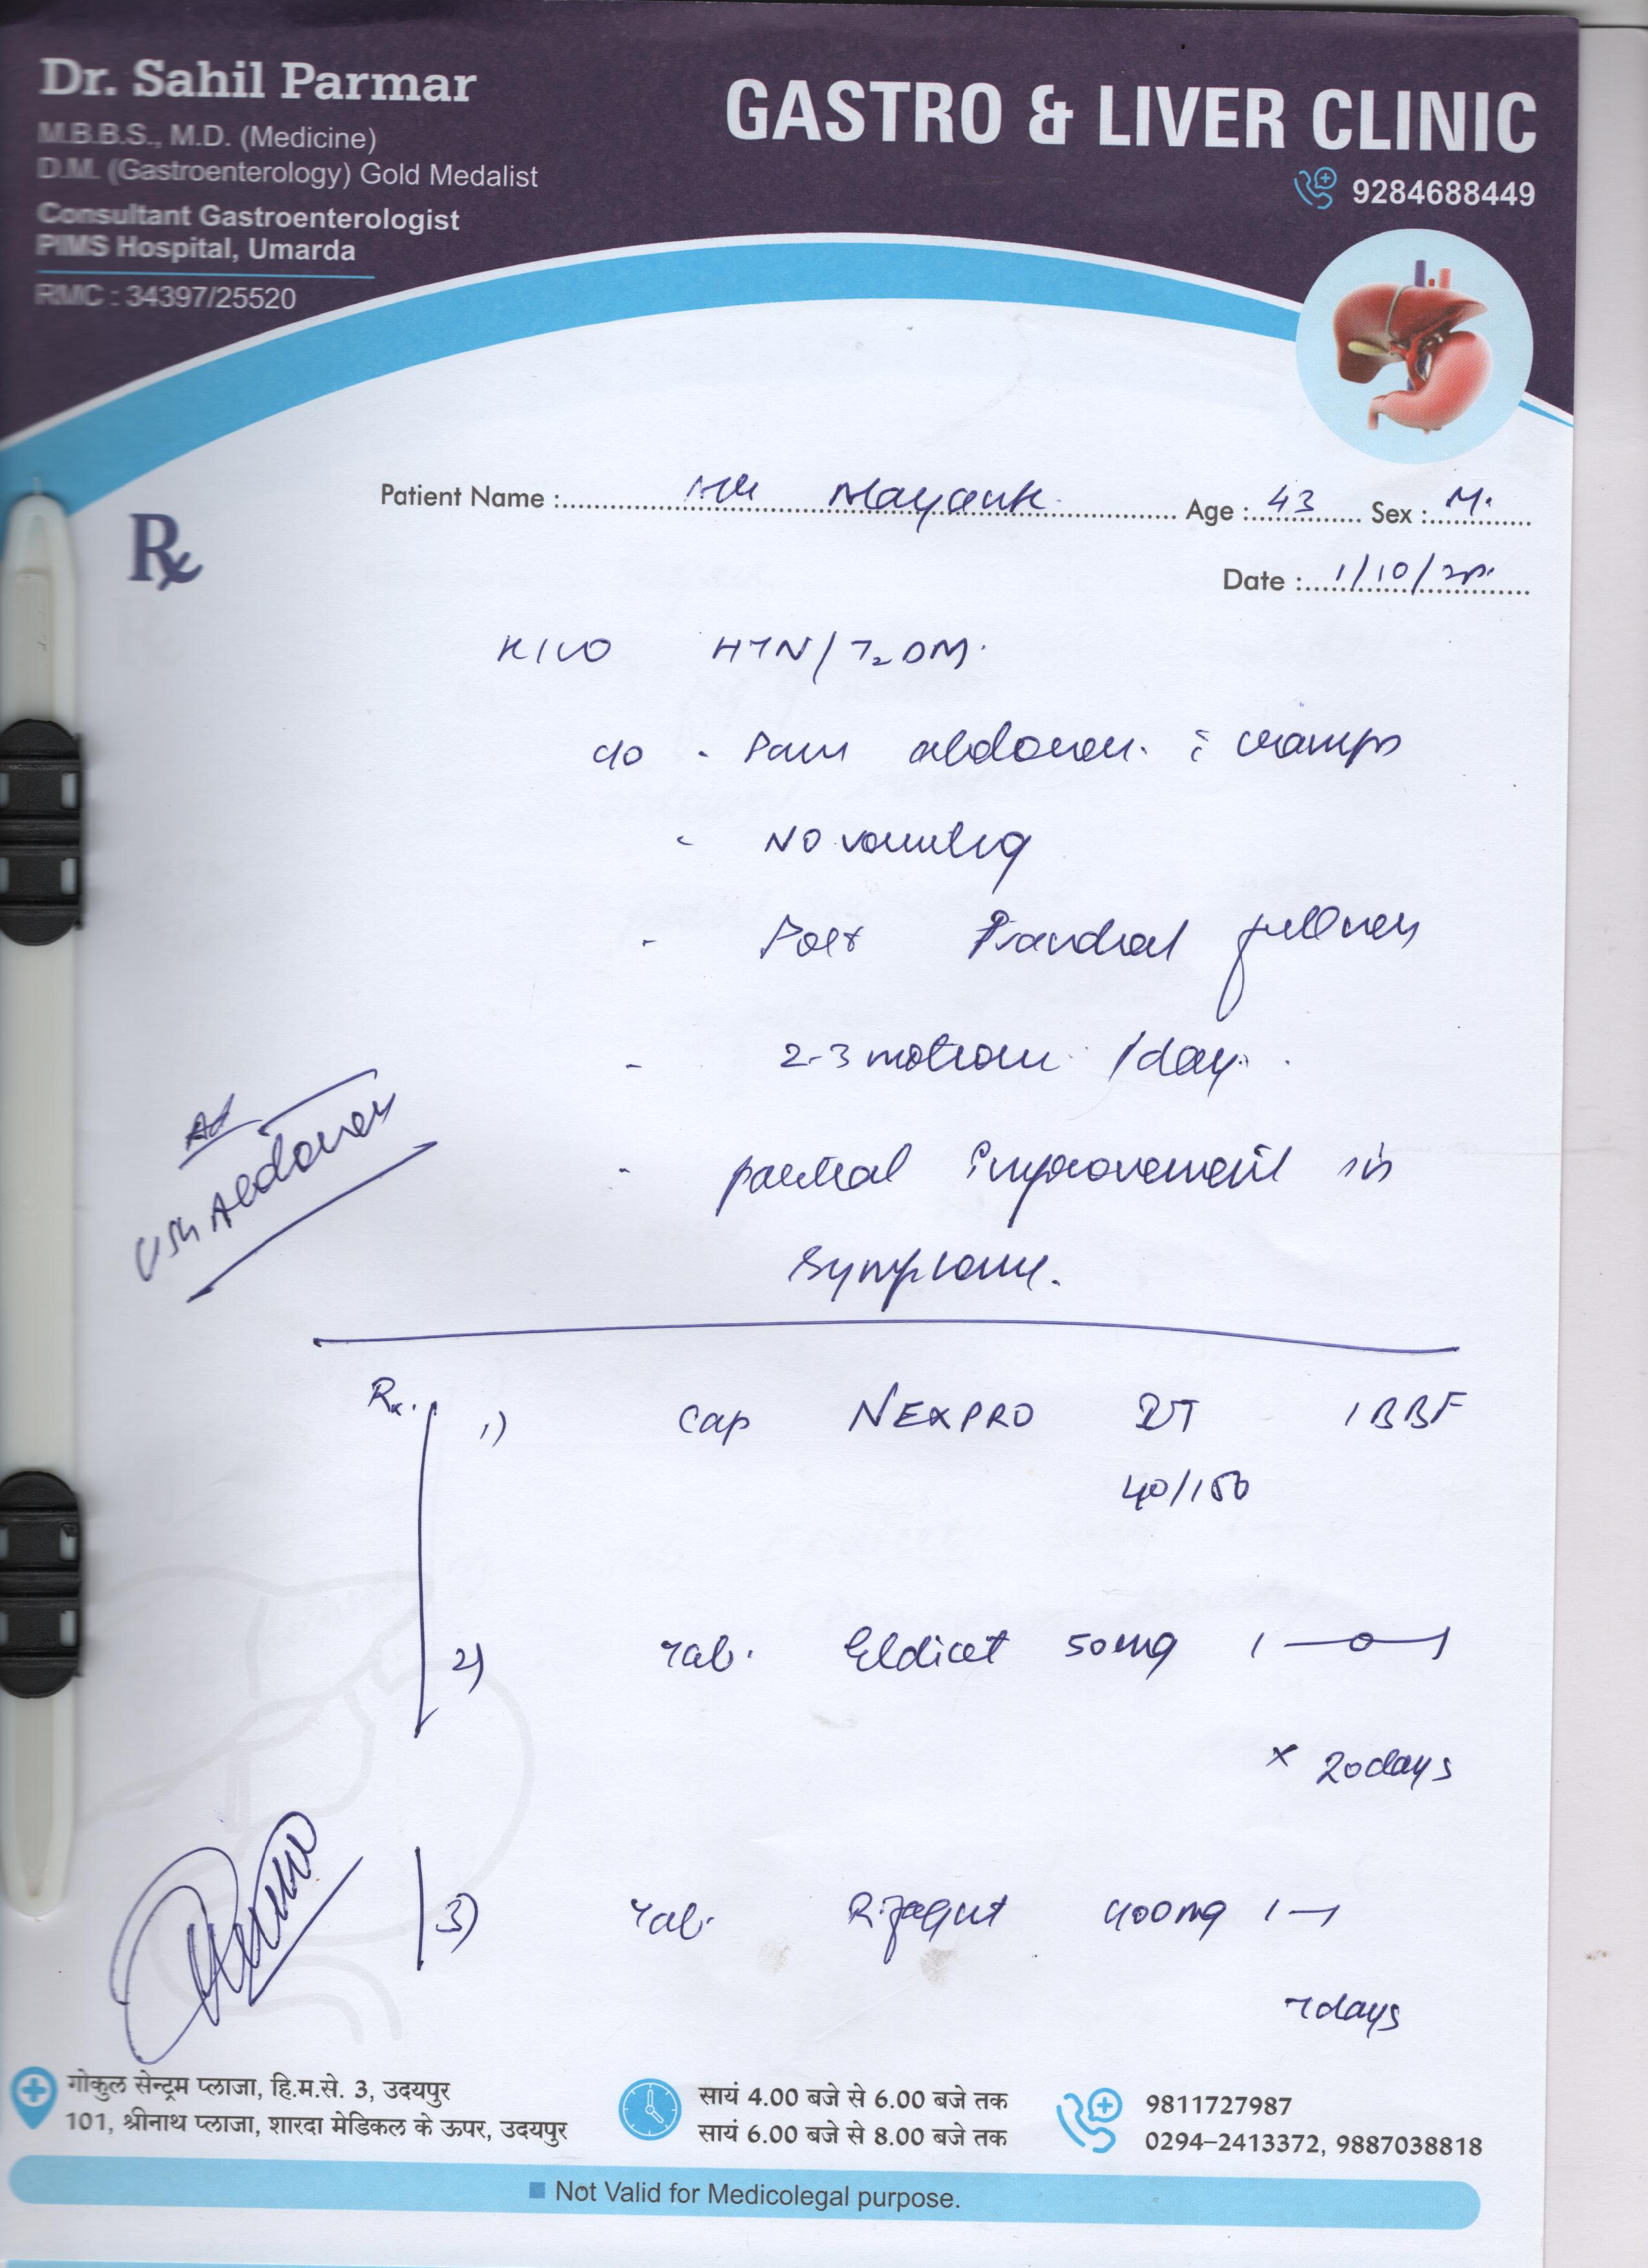 Dr. Sahil Parmar
M.B.B.S., M.D. (Medicine)
D.M. (Gastroenterology) Gold Medalist
Consultant Gastroenterologist
PIMS Hospital, Umarda
RMC : 34397/25520
GASTRO & LIVER CLINIC
9284688449
Patient Name : Mr Mayank Age : 43 Sex : M.
Rx
Date : 1/10/
K/C/O HTN/T2DM.
c/o - Pain abdomen. c cramps
- No vomiting
- Post Prandial fullness
- 2-3 motions /day.
- partial improvement in
symptoms.
Ad
USG Abdomen
Rx.
1) Cap NEXPRO 1 BBF
40/150
2) Tab. Eldicet 50mg 1-0-1
x 20days
3) Tab. Rifagut 400mg 1-1
7days
गोकुल सेन्ट्रम प्लाजा, हि.म.से. 3, उदयपुर
101, श्रीनाथ प्लाजा, शारदा मेडिकल के ऊपर, उदयपुर
सायं 4.00 बजे से 6.00 बजे तक
सायं 6.00 बजे से 8.00 बजे तक
9811727987
0294-2413372, 9887038818
Not Valid for Medicolegal purpose.